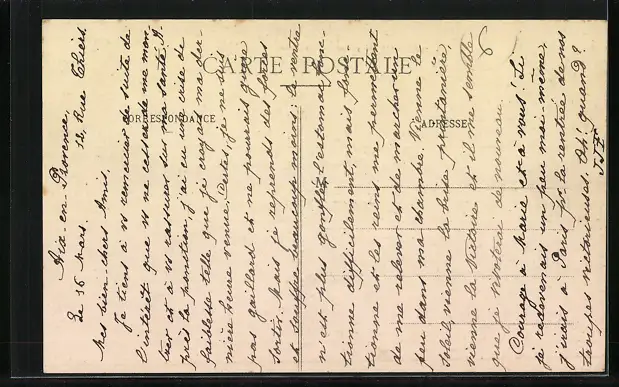 CARTE POSTALE
CORRESPONDANCE
ADRESSE
Aix-en-Provence,
Le 16 Mars. 12, Rue Thiers
Mes bien-chers Amis.
Je tiens à vs remercier de suite de
l'intérêt que vs ne cessez de me mon-
trer et à vs rassurer sur ma santé. A-
près la ponction, j'ai eu une crise de
faiblesse telle que je croyais ma der-
nière heure venue. Certes, je ne suis
pas gaillard et ne pourrais guère
sortir. Mais je reprends des forces
et souffre beaucoup moins: le ventre
n'est plus gonflé, l'estomac fonc-
tionne difficilement, mais fonc-
tionne et les reins me permettent
de me relever et de marcher un
peu dans ma chambre. Vienne le
soleil, vienne la brise printanière,
vienne la Victoire et il me semble
que je revivrai de nouveau.
Courage à Marie et à vous! Si
je redevenais un peu moi-même,
j'irais à Paris pr la rentrée de nos
troupes victorieuses. Oh! quand?